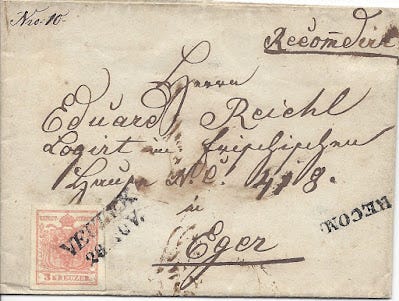 Nro. 10.
Recom̄dirt
Herrn
Eduard Reichl
Logirt im
Hause N. C. 418.
in
Eger
RECOM.
26 NOV.
3 KREUZER